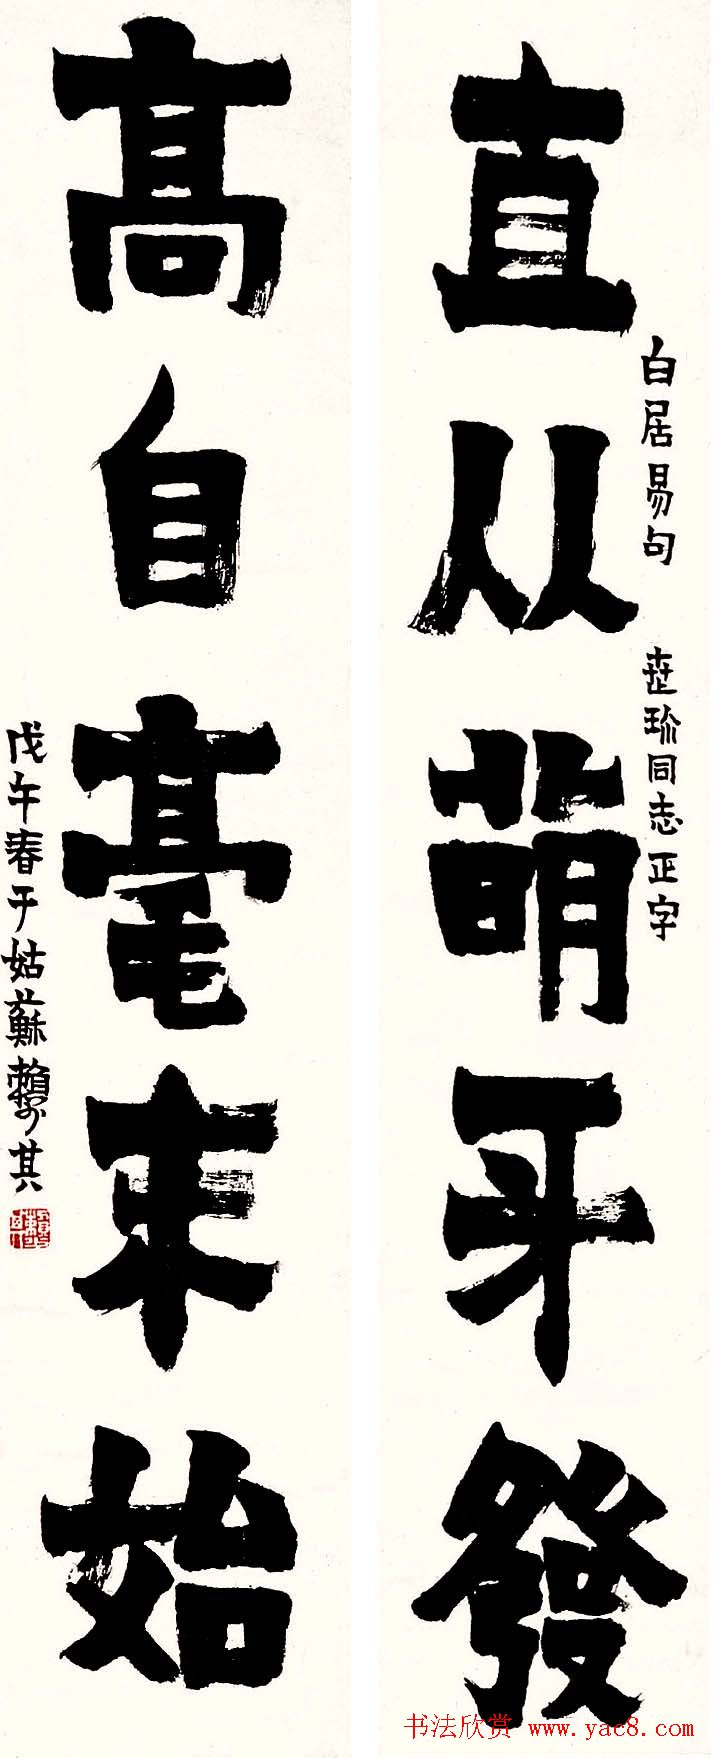 白居易句
同志正字
直从萌牙發
高自毫末始
戊午春于姑蘇賴少其
书法欣赏 www.yac8.com